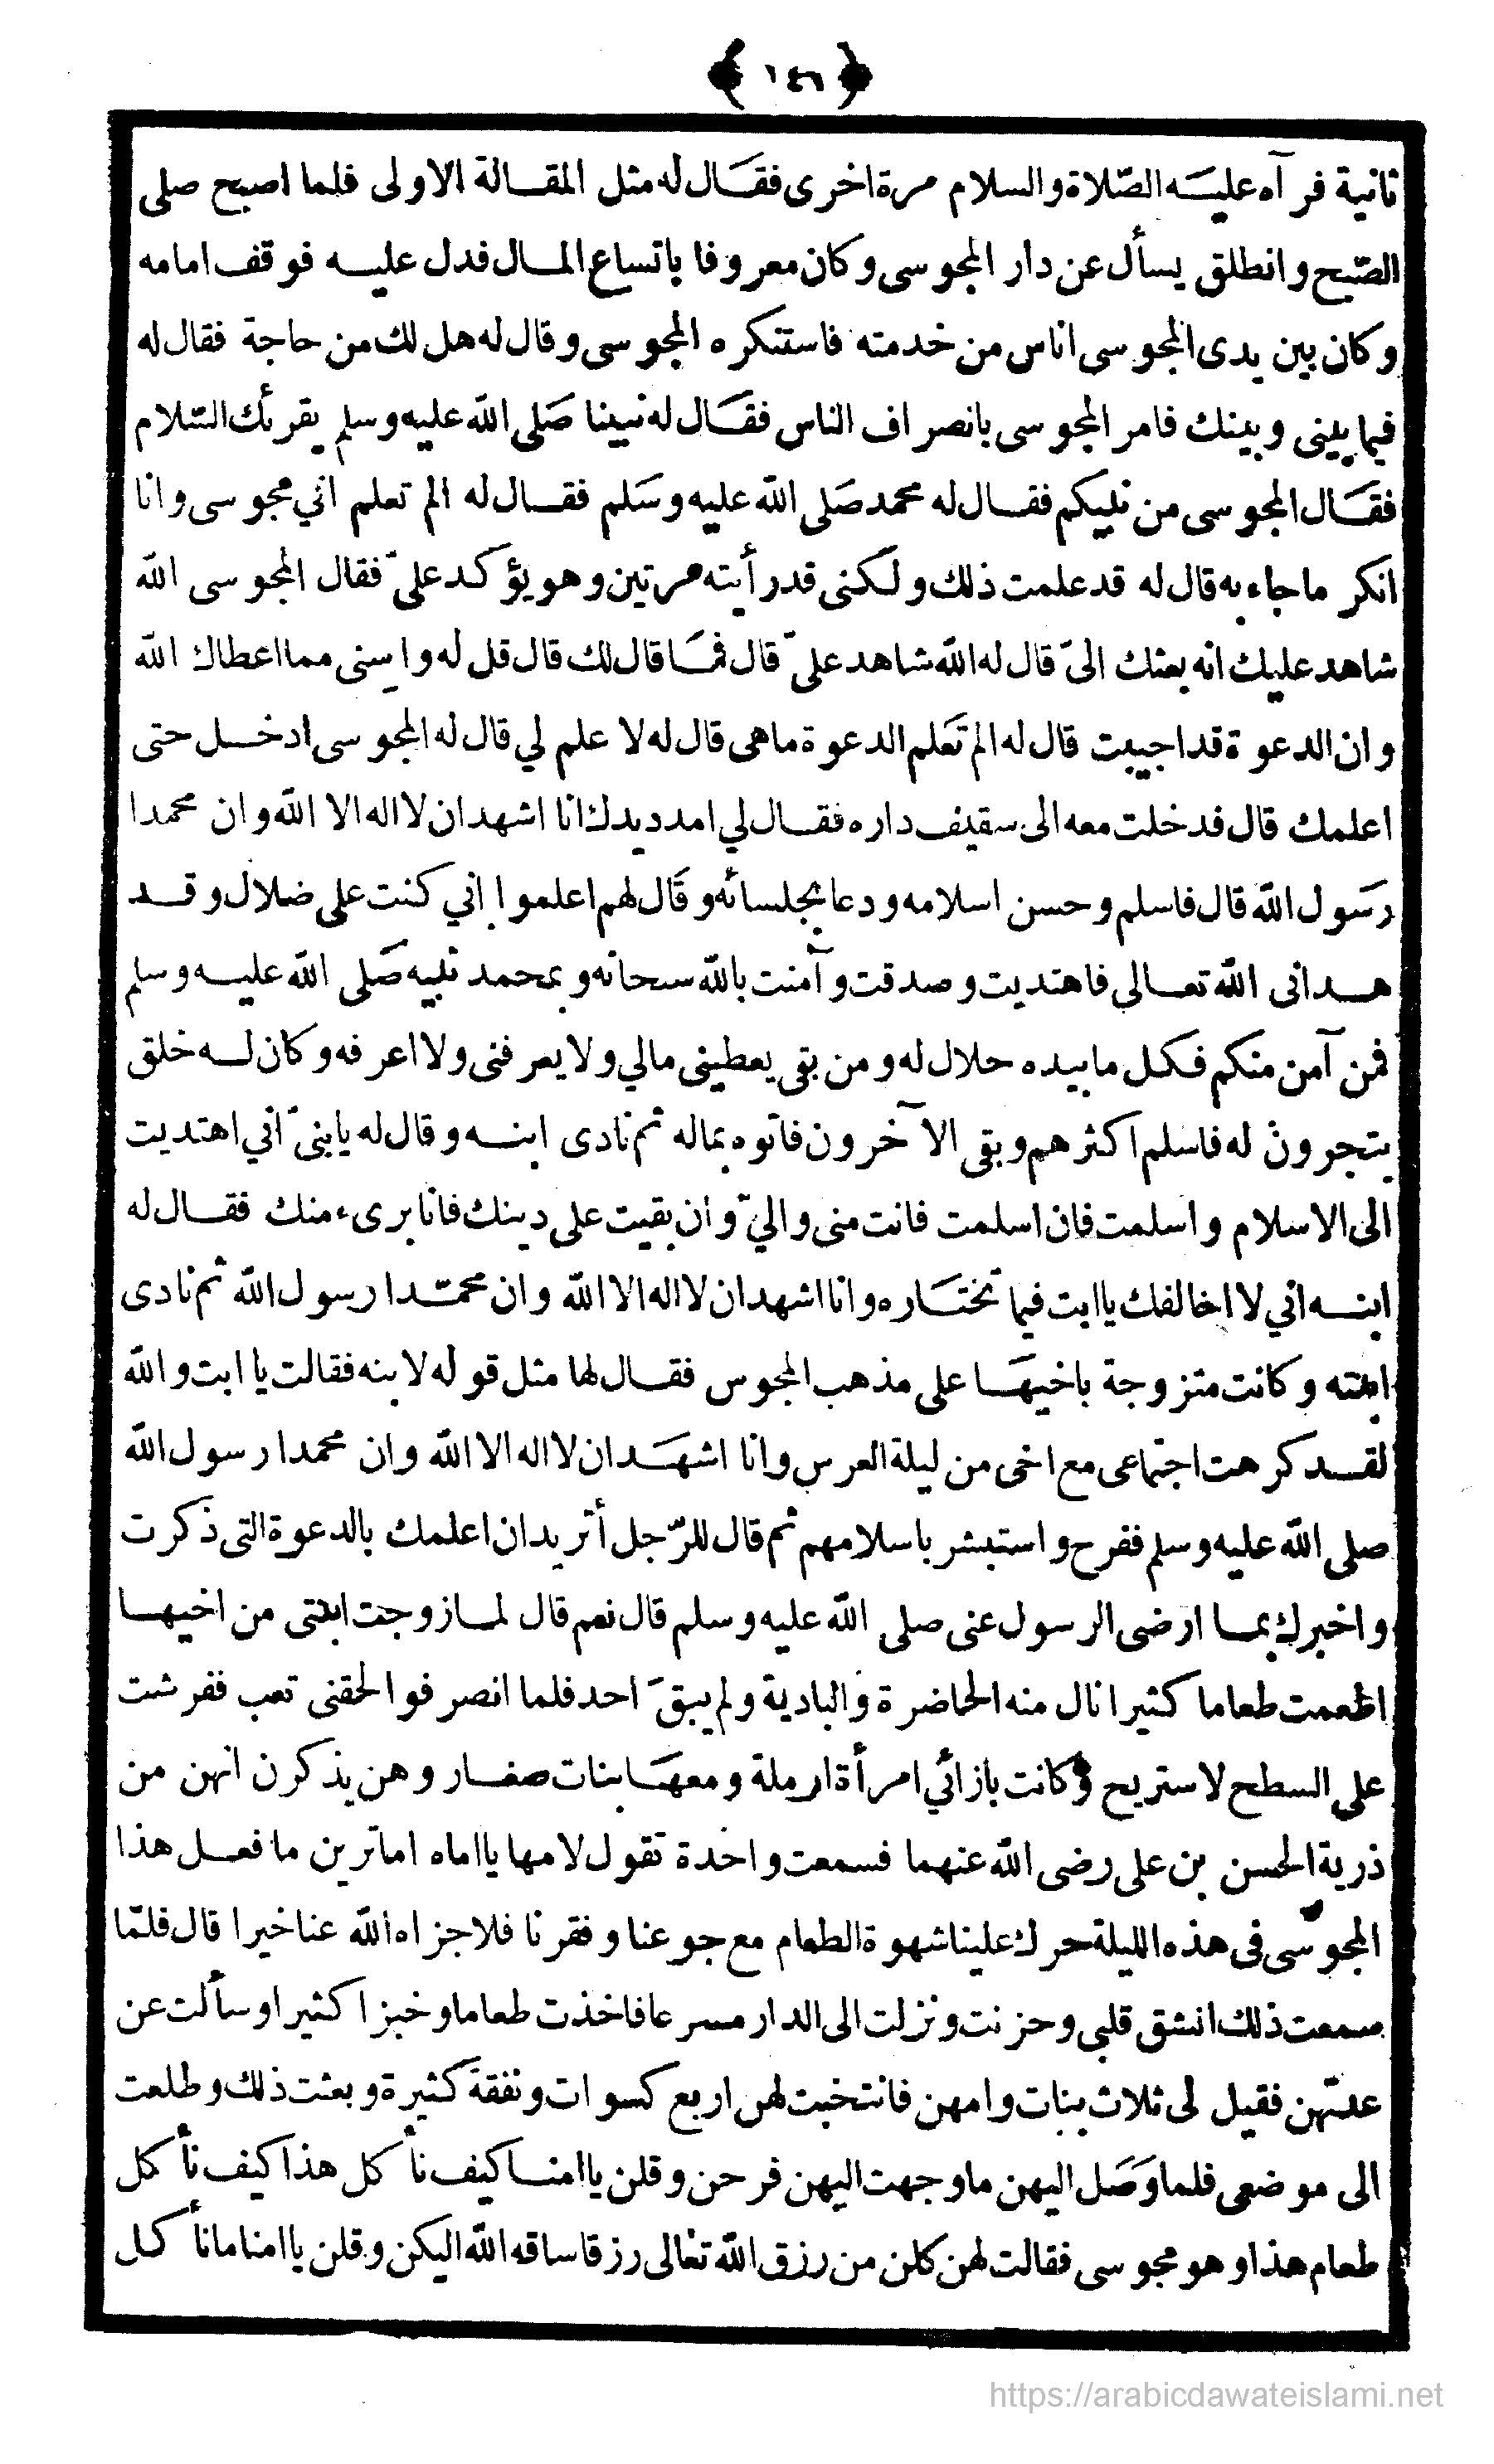 ﴿ ١٤٦ ﴾
ثانية فرآه عليه الصّلاة والسلام مرة اخرى فقال له مثل المقالة الاولى فلما اصبح صلى
الصّبح وانطلق يسأل عن دار المجوسى وكان معروفا باتساع المال فدل عليه فوقف امامه
وكان بين يدى المجوسى اناس من خدمته فاستنكره المجوسى وقال له هل لك من حاجة فقال له
فيما بينى وبينك فامر المجوسى بانصراف الناس فقال له نبينا صَلى الله عليه وسلم يقريك السّلام
فقَال المجوسى من نبيكم فقال له محمد صَلى الله عليه وسَلم فقال له الم تعلم اني مجوسى وانا
انكر ما جاء به قال له قد علمت ذلك ولكنى قد رأيته مرتين وهو يؤكد علىّ فقال المجوسى الله
شاهد عليك انه بعثك الىّ قال له الله شاهد علىّ قال فمَا قال لك قال قل له واسنى مما اعطاك الله
وان الدعوة قد اجيبت قال له الم تَعلم الدعوة ما هى قال له لا علم لي قال له المجوسى ادخل حتى
اعلمك قال فدخلت معه الى سقيف داره فقال لي امدد يدك انا اشهد ان لا اله الا الله وان محمدا
رسَول الله قال فاسلم وحسن اسلامه ودعا بجلسائه وقَال لهم اعلموا اني كنت على ضلال وقد
هدانى الله تعالي فاهتديت وصدقت وآمنت بالله سبحانه وبمحمد نبيه صَلى الله عليه وسلم
فمن آمن منكم فكل ما بيده حلال له ومن بقى يعطينى مالي ولا يعرفنى ولا اعرفه وكان له خلق
يتجرون له فاسلم اكثرهم وبقى الآخرون فاتوه بماله ثم نادى ابنه وقال له يا بنىّ اني اهتديت
الى الاسلام واسلمت فان اسلمت فانت منى واليّ وان بقيت على دينك فانا برىء منك فقال له
ابنه اني لا اخالفك يا ابت فيما تختَاره وانا اشهد ان لا اله الا الله وان محمّدا رسول الله ثم نادى
ابنته وكانت متزوجة باخيهَا على مذهب المجوس فقال لها مثل قوله لابنه فقالت يا ابت والله
لقد كرهت اجتماعى مع اخى من ليلة العرس وانا اشهَد ان لا اله الا الله وان محمدا رسول الله
صلى الله عليه وسلم ففرح واستبشر باسلامهم ثم قال للرّجل أتريد ان اعلمك بالدعوة التى ذكرت
واخبرك بما ارضى الرسول عنى صلى الله عليه وسلم قال نعم قال لما زوجت ابنتى من اخيها
اطعمت طعاما كثيرا نال منه الحاضرة والبادية ولم يبقَ احد فلما انصرفوا لحقنى تعب ففرشت
على السطح لاستريح وكانت بازائي امرأة ارملة ومعهَا بنات صغار وهن يذكرن انهن من
ذرية الحسن بن على رضى الله عنهما فسمعت واحدة تقول لامها يا اماه اما ترين ما فعل هذا
المجوسى فى هذه الليلة حرك علينا شهوة الطعام مع جوعنا وفقرنا فلا جزاه الله عنا خيرا قال فلمّا
سمعت ذلك انشق قلبى وحزنت ونزلت الى الدار مسرعا فاخذت طعاما وخبزا كثيرا وسألت عن
عدّتهن فقيل لى ثلاث بنات وامهن فانتخبت لهن اربع كسوات ونفقة كثيرة وبعثت ذلك وطلعت
الى موضعى فلما وصَل اليهن ما وجهت اليهن فرحن وقلن يا امنا كيف نأكل هذا كيف نأكل
طعام هذا وهو مجوسى فقالت لهن كلن من رزق الله تعالى رزقا ساقه الله اليكن وقلن يا امنا ما نأكل
https://arabicdawateislami.net